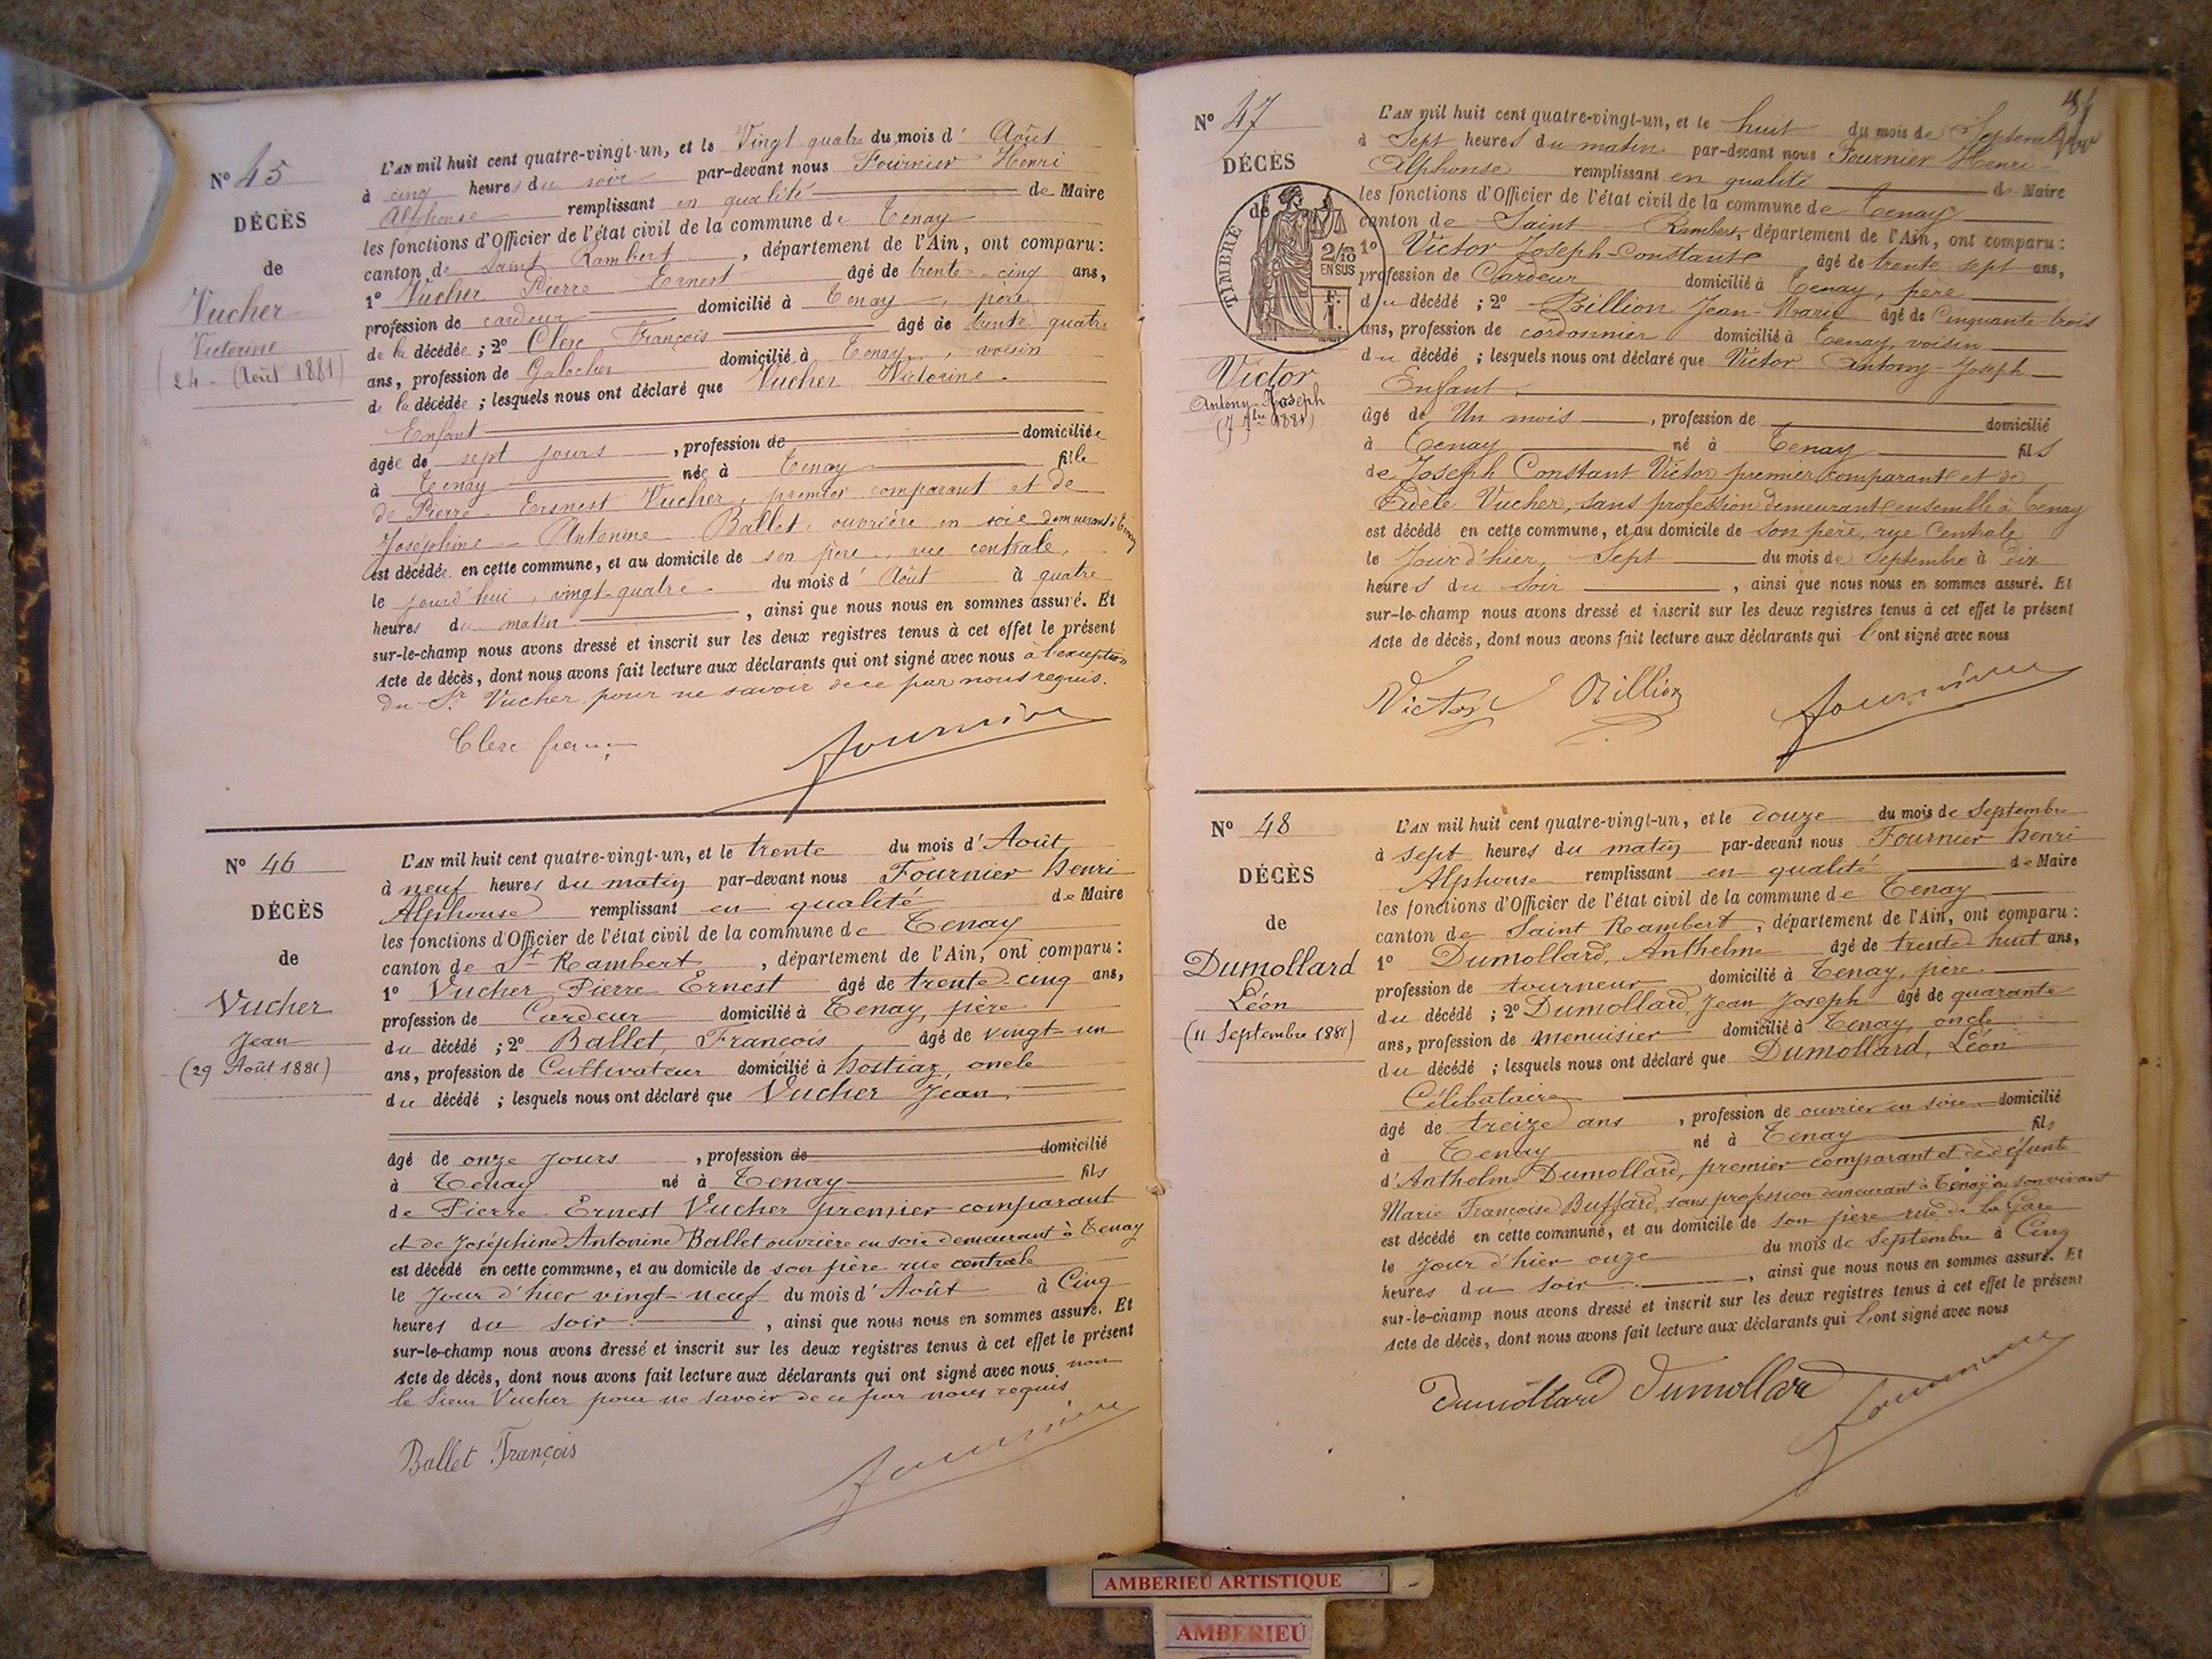 Nº 45
DÉCÈS
de
Vucher
Victorine
(24 Août 1881)
L'AN mil huit cent quatre-vingt-un, et le Vingt quatre du mois d' Août
à cinq heures du soir par-devant nous Fournier Henri
Alphonse remplissant en qualité de Maire
les fonctions d'Officier de l'état civil de la commune de Tenay
canton de Saint Rambert, département de l'Ain, ont comparu :
1º Vucher Pierre Ernest âgé de trente-cinq ans,
profession de cardeur domicilié à Tenay, père
de la décédée ; 2º Clerc François âgé de trente quatre
ans, profession de Galocher domicilié à Tenay, voisin
de la décédée ; lesquels nous ont déclaré que Vucher Victorine
Enfant
âgée de sept jours, profession de domiciliée
à Tenay née à Tenay fille
de Pierre Ernest Vucher, premier comparant et de
Joséphine Antonine Ballet, ouvrière en soie demeurant à Tenay
est décédée en cette commune, et au domicile de son père, rue centrale,
le jourd'hui, vingt-quatre du mois d' Août à quatre
heures du matin, ainsi que nous nous en sommes assuré. Et
sur-le-champ nous avons dressé et inscrit sur les deux registres tenus à cet effet le présent
Acte de décès, dont nous avons fait lecture aux déclarants qui ont signé avec nous à l'exception
du Sr Vucher pour ne savoir de ce par nous requis.
Clerc Fournier
Nº 46
DÉCÈS
de
Vucher
Jean
(29 Août 1881)
L'AN mil huit cent quatre-vingt-un, et le trente du mois d' Août
à neuf heures du matin par-devant nous Fournier Henri
Alphonse remplissant en qualité de Maire
les fonctions d'Officier de l'état civil de la commune de Tenay
canton de St Rambert, département de l'Ain, ont comparu :
1º Vucher Pierre Ernest âgé de trente-cinq ans,
profession de Cardeur domicilié à Tenay, père
du décédé ; 2º Ballet, François âgé de vingt-un
ans, profession de Cultivateur domicilié à hostiaz, oncle
du décédé ; lesquels nous ont déclaré que Vucher Jean
âgé de onze jours, profession de domicilié
à Tenay né à Tenay fils
de Pierre Ernest Vucher premier comparant
et de Joséphine Antonine Ballet ouvrière en soie demeurant à Tenay
est décédé en cette commune, et au domicile de son père rue centrale
le jour d'hier vingt-neuf du mois d' Août à Cinq
heures du soir, ainsi que nous nous en sommes assuré. Et
sur-le-champ nous avons dressé et inscrit sur les deux registres tenus à cet effet le présent
Acte de décès, dont nous avons fait lecture aux déclarants qui ont signé avec nous non
le Sieur Vucher pour ne savoir de ce par nous requis
Ballet François Fournier
Nº 47
DÉCÈS
de
TIMBRE
2/10
EN SUS
Victor
Antony-Joseph
(7 7bre 1881)
L'AN mil huit cent quatre-vingt-un, et le huit du mois de Septembre
à Sept heures du matin par-devant nous Fournier Henri
Alphonse remplissant en qualité de Maire
les fonctions d'Officier de l'état civil de la commune de Tenay
canton de Saint Rambert, département de l'Ain, ont comparu :
1º Victor Joseph-Constant âgé de trente sept ans,
profession de Cardeur domicilié à Tenay, père
du décédé ; 2º Billion Jean-Marie âgé de Cinquante-trois
ans, profession de cordonnier domicilié à Tenay, voisin
du décédé ; lesquels nous ont déclaré que Victor Antony-Joseph
Enfant
âgé de Un mois, profession de domicilié
à Tenay né à Tenay fils
de Joseph Constant Victor premier comparant et de
Fidèle Vucher, sans profession demeurant ensemble à Tenay
est décédé en cette commune, et au domicile de son père, rue Centrale
le Jour d'hier, Sept du mois de Septembre à dix
heures du Soir, ainsi que nous nous en sommes assuré. Et
sur-le-champ nous avons dressé et inscrit sur les deux registres tenus à cet effet le présent
Acte de décès, dont nous avons fait lecture aux déclarants qui l'ont signé avec nous
Victor Billion Fournier
Nº 48
DÉCÈS
de
Dumollard
Léon
(11 Septembre 1881)
L'AN mil huit cent quatre-vingt-un, et le douze du mois de Septembre
à sept heures du matin par-devant nous Fournier henri
Alphonse remplissant en qualité de Maire
les fonctions d'Officier de l'état civil de la commune de Tenay
canton de Saint Rambert, département de l'Ain, ont comparu :
1º Dumollard, Anthelme âgé de trente-huit ans,
profession de tourneur domicilié à Tenay, père
du décédé ; 2º Dumollard, Jean Joseph âgé de quarante
ans, profession de menuisier domicilié à Tenay, oncle
du décédé ; lesquels nous ont déclaré que Dumollard, Léon
Célibataire
âgé de treize ans, profession de ouvrier en soie domicilié
à Tenay né à Tenay fils
d'Anthelme Dumollard, premier comparant et de défunte
Marie Françoise Buffard, sans profession demeurant à Tenay en son vivant
est décédé en cette commune, et au domicile de son père rue de la Gare
le jour d'hier onze du mois de Septembre à Cinq
heures du soir, ainsi que nous nous en sommes assuré. Et
sur-le-champ nous avons dressé et inscrit sur les deux registres tenus à cet effet le présent
Acte de décès, dont nous avons fait lecture aux déclarants qui l'ont signé avec nous
Dumollard Dumollard Fournier
AMBERIEU ARTISTIQUE
AMBERIEU